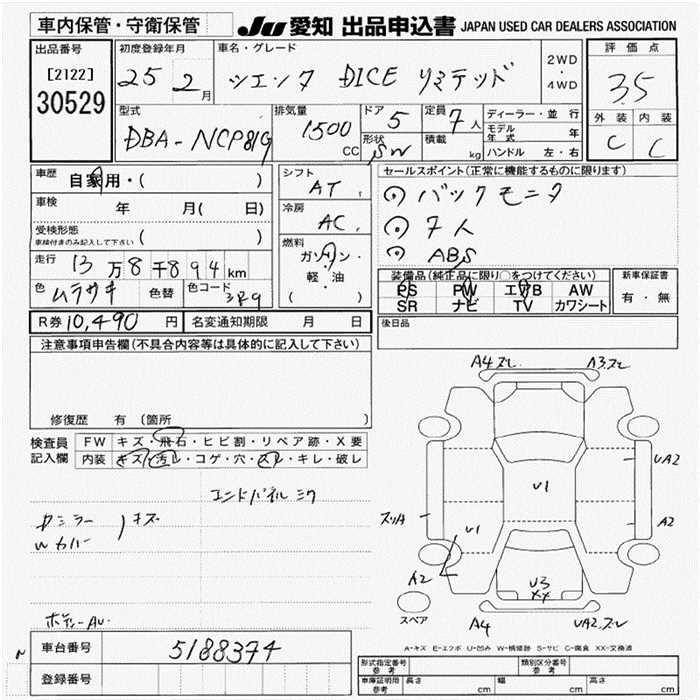 車内保管・守衛保管 JU 愛知 出品申込書 JAPAN USED CAR DEALERS ASSOCIATION
出品番号 初度登録年月 車名・グレード 2WD・4WD 評価点
[2122] 30529 25 2月 シエンタ DICE リミテッド 3.5
型式 排気量 ドア 5 定員 7人 ディーラー・並行 外装 内装
DBA-NCP81G 1500 CC 形状 SW 積載 kg モデル年式 年 C C
ハンドル 左・右
車歴 自家用・( ) シフト AT セールスポイント(正常に機能するものに限ります)
車検 年 月( 日) 冷房 AC バックモニタ
受検形態 車検付きのみ記入して下さい ( ) 7人
走行 13万8千894km 燃料 ガソリン・軽・油 ( ) ABS
色 ムラサキ 色替 色コード 3P9 装備品(純正品に限り○をつけてください) 新車保証書
PS PW エアB AW 有・無
SR ナビ TV カワシート
R券 10,490円 名変通知期限 月 日 後日品
注意事項申告欄(不具合内容等は具体的に記入して下さい)
修復歴 有 (箇所
検査員記入欄 FW キズ・飛石・ヒビ割・リペア跡・X要
内装 キズ・汚レ・コゲ・穴・スレ・キレ・破レ
エンドパネル
ミラー キズ
カバー
A4 A3
U1 UA2
A U1 A2
A2 U3 XX
スペア A4 UA2
A-キズ E-エクボ U-凹み W-補修跡 S-サビ C-腐食 XX-交換済
車台番号 5188374
登録番号
形式指定番号 参考 類別区分番号 参考
車庫証明用 参考 長さ cm 幅 cm 高さ cm